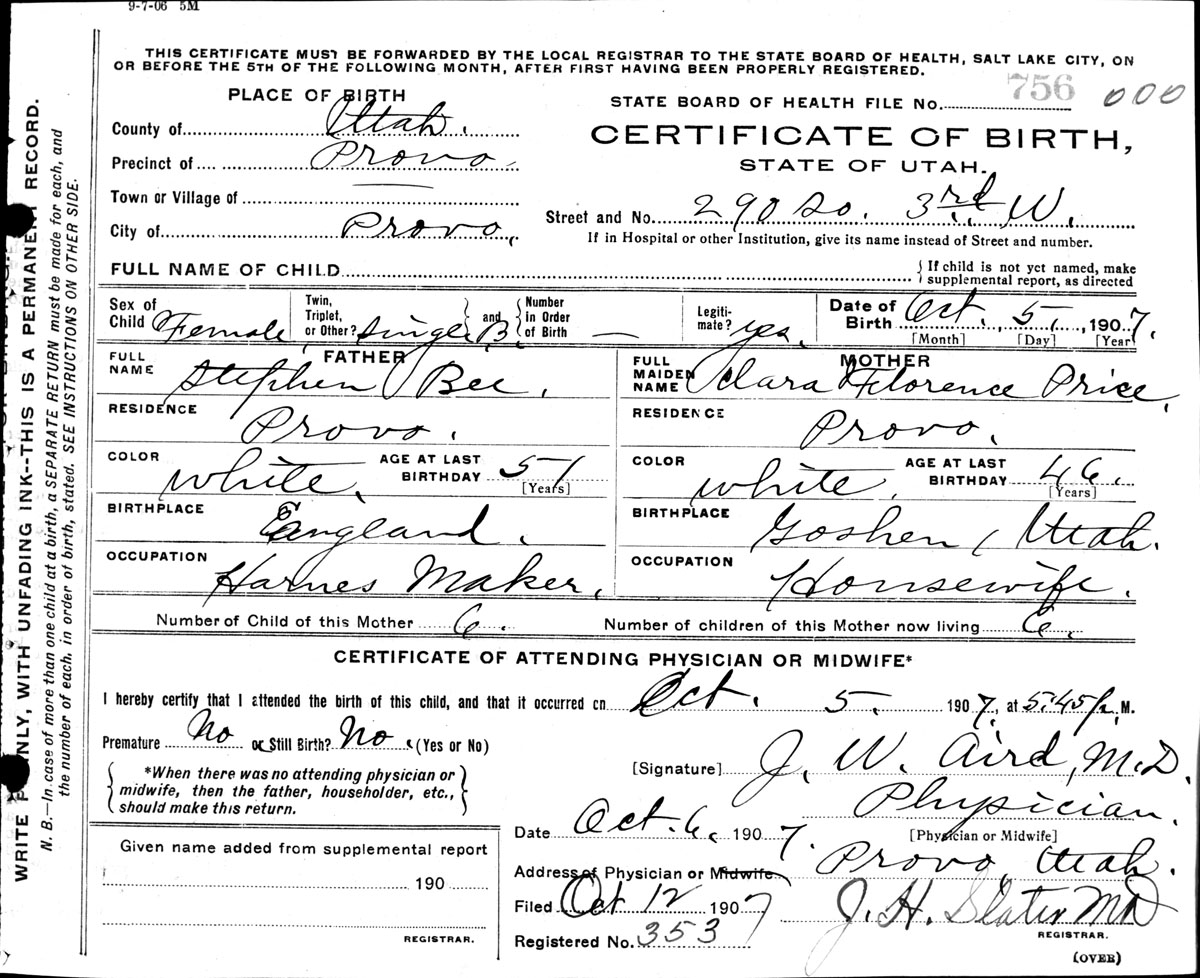 9-7-06 5M
THIS CERTIFICATE MUST BE FORWARDED BY THE LOCAL REGISTRAR TO THE STATE BOARD OF HEALTH, SALT LAKE CITY, ON
OR BEFORE THE 5TH OF THE FOLLOWING MONTH, AFTER FIRST HAVING BEEN PROPERLY REGISTERED.
WRITE ONLY, WITH UNFADING INK--THIS IS A PERMANENT RECORD.
N. B.—In case of more than one child at a birth, a SEPARATE RETURN must be made for each, and
the number of each, in order of birth, stated. SEE INSTRUCTIONS ON OTHER SIDE.
PLACE OF BIRTH
County of Utah.
Precinct of Provo
Town or Village of —
City of Provo,
STATE BOARD OF HEALTH FILE No. 756 000
CERTIFICATE OF BIRTH,
STATE OF UTAH.
Street and No. 290 So. 3rd W.
If in Hospital or other Institution, give its name instead of Street and number.
FULL NAME OF CHILD
{ If child is not yet named, make
supplemental report, as directed
Sex of Child Female
Twin, Triplet, or Other? Single
{ and } B
Number in Order of Birth —
Legiti-mate? yes.
Date of Birth Oct. 5, 1907.
[Month] [Day] [Year]
FATHER
FULL NAME Stephen Bee.
RESIDENCE Provo.
COLOR White.
AGE AT LAST BIRTHDAY 51
[Years]
BIRTHPLACE England.
OCCUPATION Harnes Maker.
MOTHER
FULL MAIDEN NAME Clara Florence Price,
RESIDENCE Provo.
COLOR White.
AGE AT LAST BIRTHDAY 46.
[Years]
BIRTHPLACE Goshen, Utah.
OCCUPATION Housewife.
Number of Child of this Mother 6.
Number of children of this Mother now living 6.
CERTIFICATE OF ATTENDING PHYSICIAN OR MIDWIFE*
I hereby certify that I attended the birth of this child, and that it occurred on Oct. 5. 1907, at 5:45 P. M.
Premature No or Still Birth? No. (Yes or No)
{ *When there was no attending physician or
midwife, then the father, householder, etc.,
should make this return. }
[Signature] J. W. Aird, M.D.
Physician.
[Physician or Midwife]
Date Oct. 6, 1907.
Address of Physician or Midwife Provo, Utah.
Filed Oct 12 1907
J. H. Slater MD
REGISTRAR.
Registered No. 353
(OVER)
Given name added from supplemental report
190
REGISTRAR.